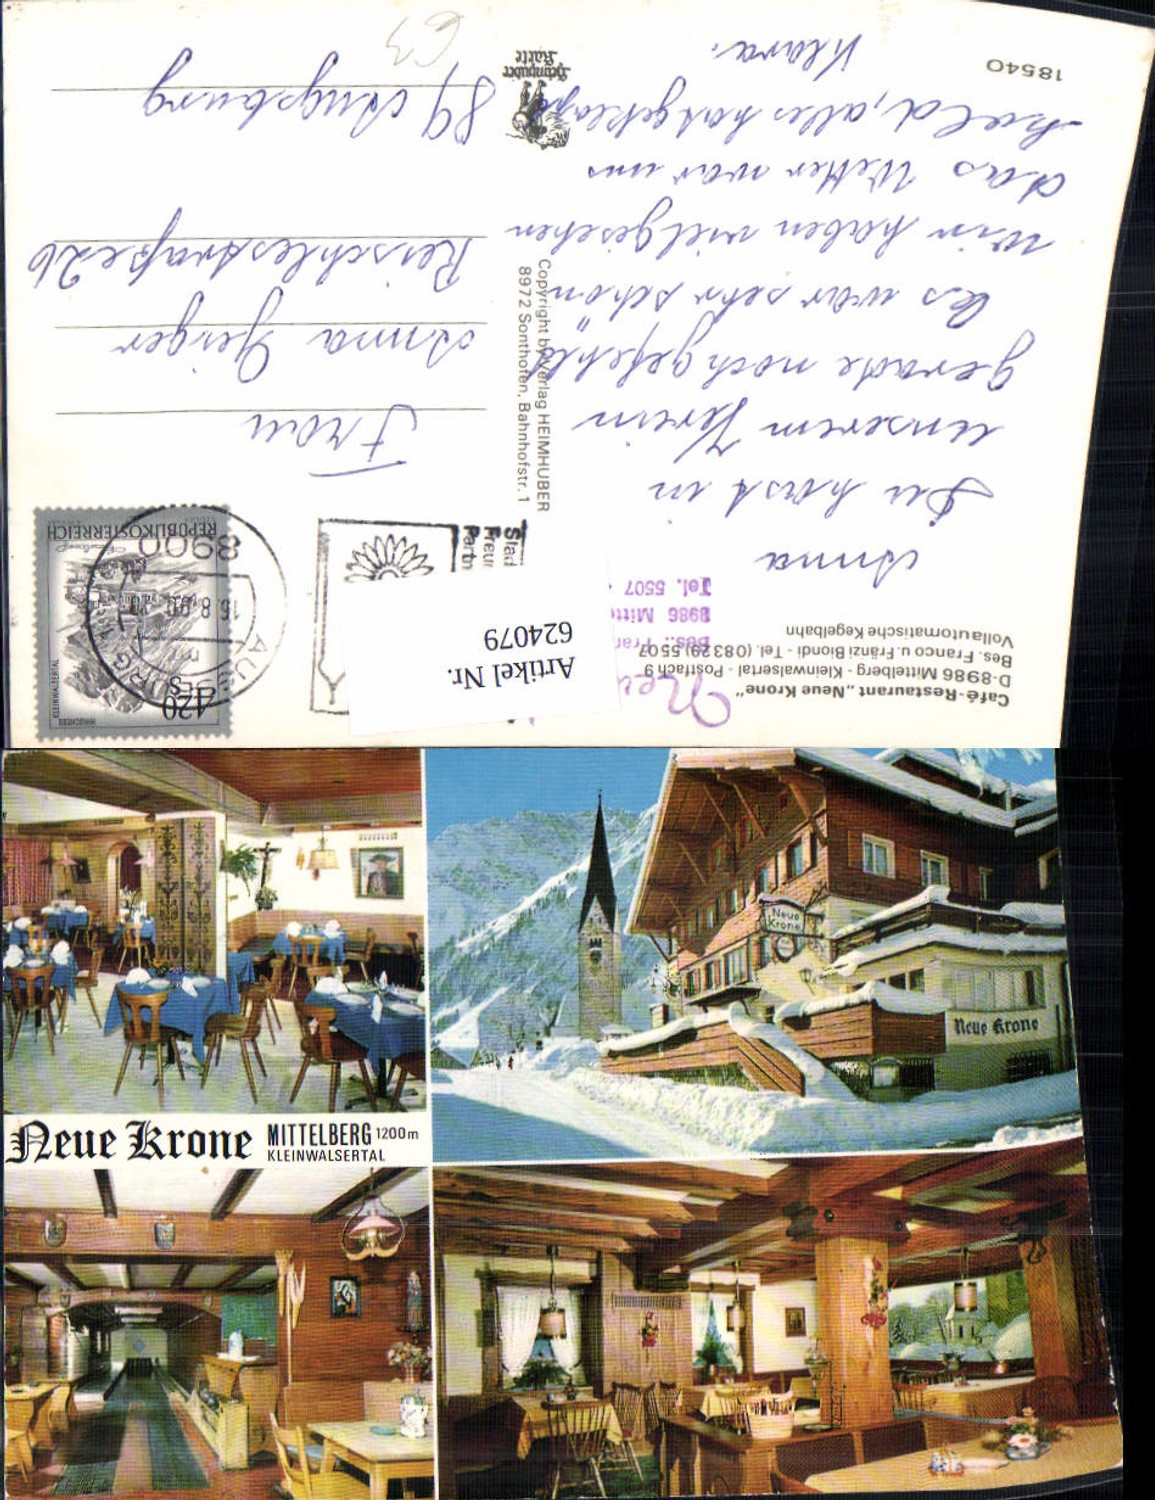 Café-Restaurant „Neue Krone“
D-8986 Mittelberg - Kleinwalsertal - Postfach 9
Bes. Franco u. Fränzi Biondi - Tel. (08329) 5507
Vollautomatische Kegelbahn
Neu
Bes.: Fran
8986 Mitte
Tel. 5507
Artikel Nr.
624079
Anna
Du hast in
unserem Verein
gerade noch gefehlt
Es war sehr schön
Wir haben viel gesehen
das Wetter war uns
hold, alles hat geklappt
Klara.
18540
Copyright by Verlag HEIMHUBER
8972 Sonthofen, Bahnhofstr. 1
Heimhuber
Karte
Stad
Freun
Partn
REPUBLIK ÖSTERREICH
KLEINWALSERTAL
HIRSCHEGG
S 20
8900
AUGSBURG
Frau
Anna Geiger
Reischlestraße 26
89 Augsburg
63
Neue
Krone
Neue Krone
Neue Krone MITTELBERG 1200m
KLEINWALSERTAL